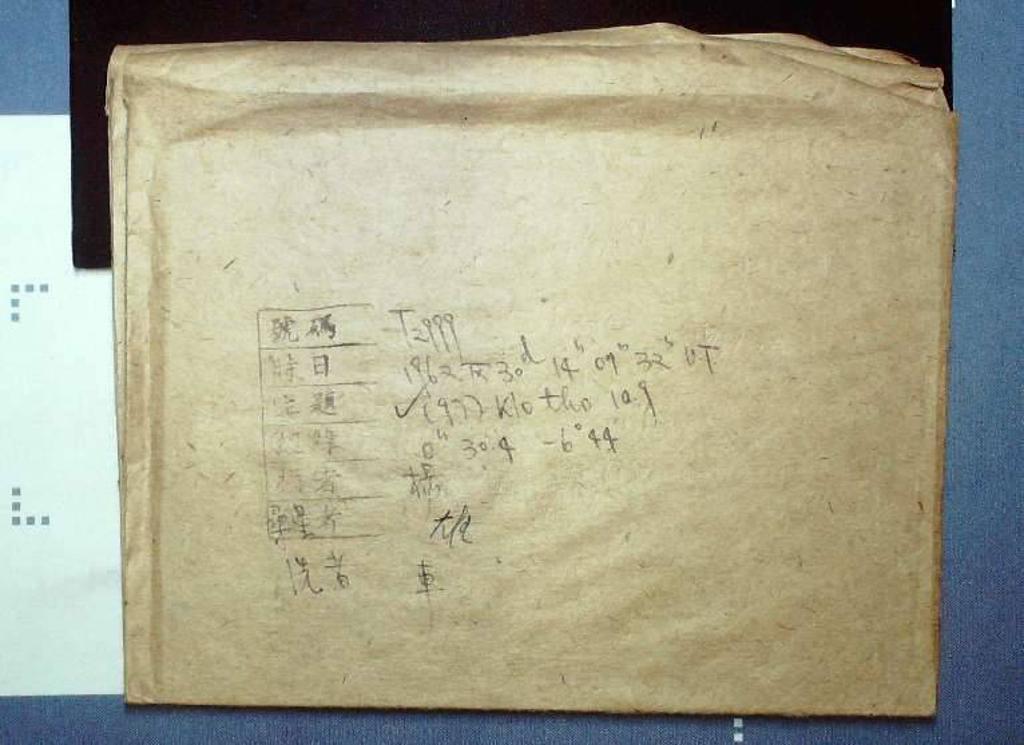 號碼 T2999
時日 1962 IX 30ᵈ 14ʰ 09ᵐ 32ˢ UT
定題 ✓(97) Klotho 10.9
0ʰ 30.4 -6°44
者 楊
尋星者 雄
洗者 車